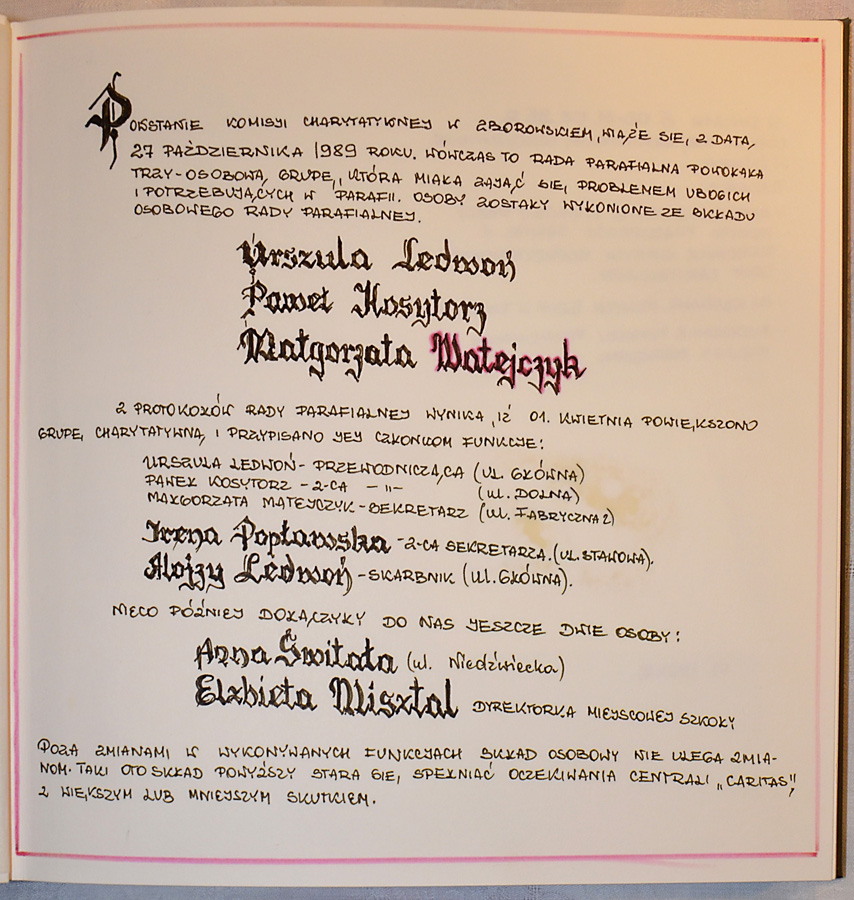 POWSTANIE KOMISJI CHARYTATYWNEJ W ZBOROWSKIEM, WIĄŻE SIĘ Z DATĄ
27 PAŹDZIERNIKA 1989 ROKU. WÓWCZAS TO RADA PARAFIALNA POWOŁAŁA
TRZY-OSOBOWĄ GRUPĘ, KTÓRA MIAŁA ZAJĄĆ SIĘ PROBLEMEM UBOGICH
I POTRZEBUJĄCYCH W PARAFII. OSOBY ZOSTAŁY WYŁONIONE ZE SKŁADU
OSOBOWEGO RADY PARAFIALNEJ.
Urszula Ledwoń
Paweł Kosytorz
Małgorzata Matejczyk
Z PROTOKOŁÓW RADY PARAFIALNEJ WYNIKA, IŻ 01. KWIETNIA POWIĘKSZONO
GRUPĘ CHARYTATYWNĄ I PRZYPISANO JEJ CZŁONKOM FUNKCJE:
URSZULA LEDWOŃ - PRZEWODNICZĄCA (UL. GŁÓWNA)
PAWEŁ KOSYTORZ - Z-CA - „ - (UL. DOLNA)
MAŁGORZATA MATEJCZYK - SEKRETARZ (UL. FABRYCZNA 2)
Irena Popławska - Z-CA SEKRETARZA. (UL. STAWOWA).
Alojzy Ledwoń - SKARBNIK (UL. GŁÓWNA).
NIECO PÓŹNIEJ DOŁĄCZYŁY DO NAS JESZCZE DWIE OSOBY:
Anna Świtała (ul. Niedźwiecka)
Elżbieta Misztal DYREKTORKA MIEJSCOWEJ SZKOŁY
POZA ZMIANAMI W WYKONYWANYCH FUNKCJACH SKŁAD OSOBOWY NIE ULEGA ZMIA-
NOM. TAKI OTO SKŁAD POWYŻSZY STARA SIĘ SPEŁNIAĆ OCZEKIWANIA CENTRALI „CARITAS",
Z WIĘKSZYM LUB MNIEJSZYM SKUTKIEM.